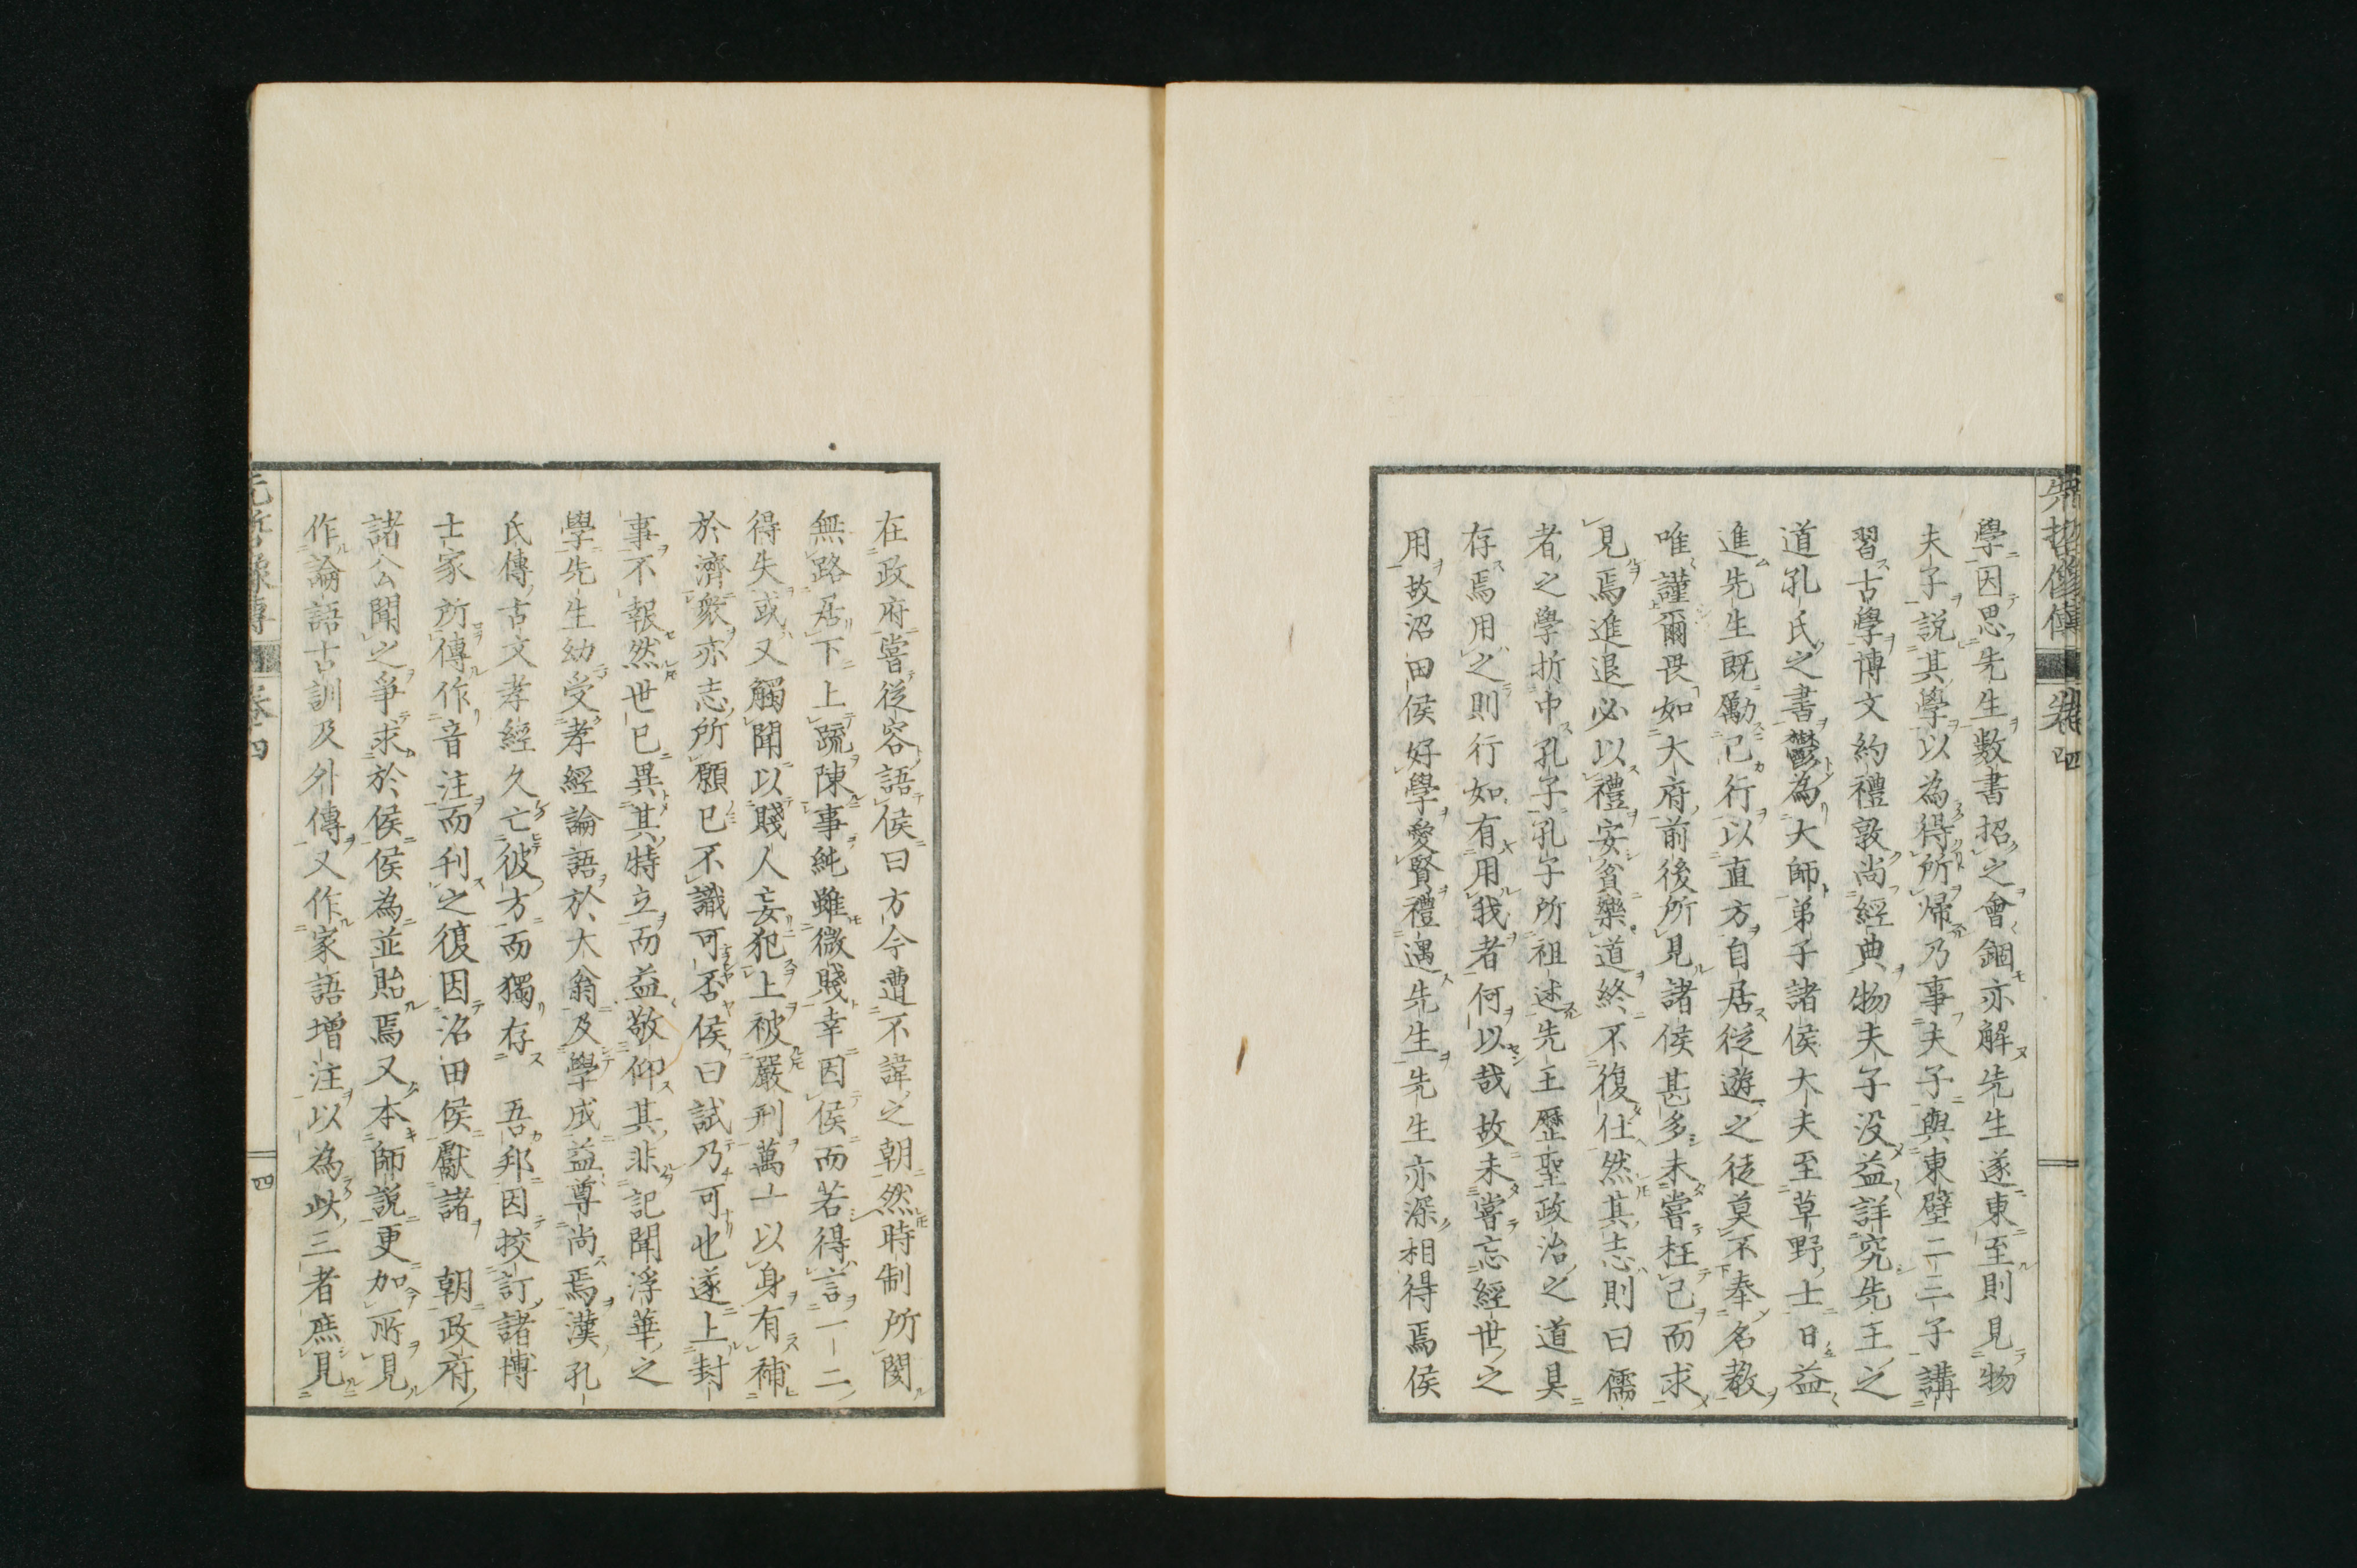 先哲像傳 卷四
學因思先生數書招之會錮亦解先生遂東至則見物
夫子説其學以為得所歸乃事夫子與東壁二三子講
習古學博文約禮敦尚經典物夫子没益詳究先王之
道孔氏之書鬱為大師弟子諸侯大夫至草野士日益
進先生既勵己行以直方自居從遊之徒莫不奉名教
唯謹爾畏如大府前後所見諸侯甚多未嘗枉己而求
見焉進退必以禮安貧樂道終不復仕然其志則曰儒
者之學折中孔子孔子所祖述先王歴聖政治之道具
存焉用之則行如有用我者何以哉故未嘗忘經世之
用故沼田侯好學愛賢禮遇先生先生亦深相得焉侯
在政府嘗從容語侯曰方今遭不諱之朝然時制所関
無路居下上疏陳事純雖微賤幸因侯而若得言一二
得失或又觸聞以賤人妄犯上被嚴刑萬一以身有補
於濟衆亦志所願已不識可否侯曰試乃可也遂上封
事不報然世已異其特立而益敬仰其非記聞浮華之
學先生幼受孝經論語於大翁及學成益尊尚焉漢孔
氏傳古文孝經久亡彼方而獨存 吾邦因挍訂諸博
士家所傳作音注而刊之復因沼田侯獻諸 朝政府
諸公聞之爭求於侯侯為並貽焉又本師説更加所見
作論語古訓及外傳又作家語增注以為此三者庶見
先哲像傳 卷四 四